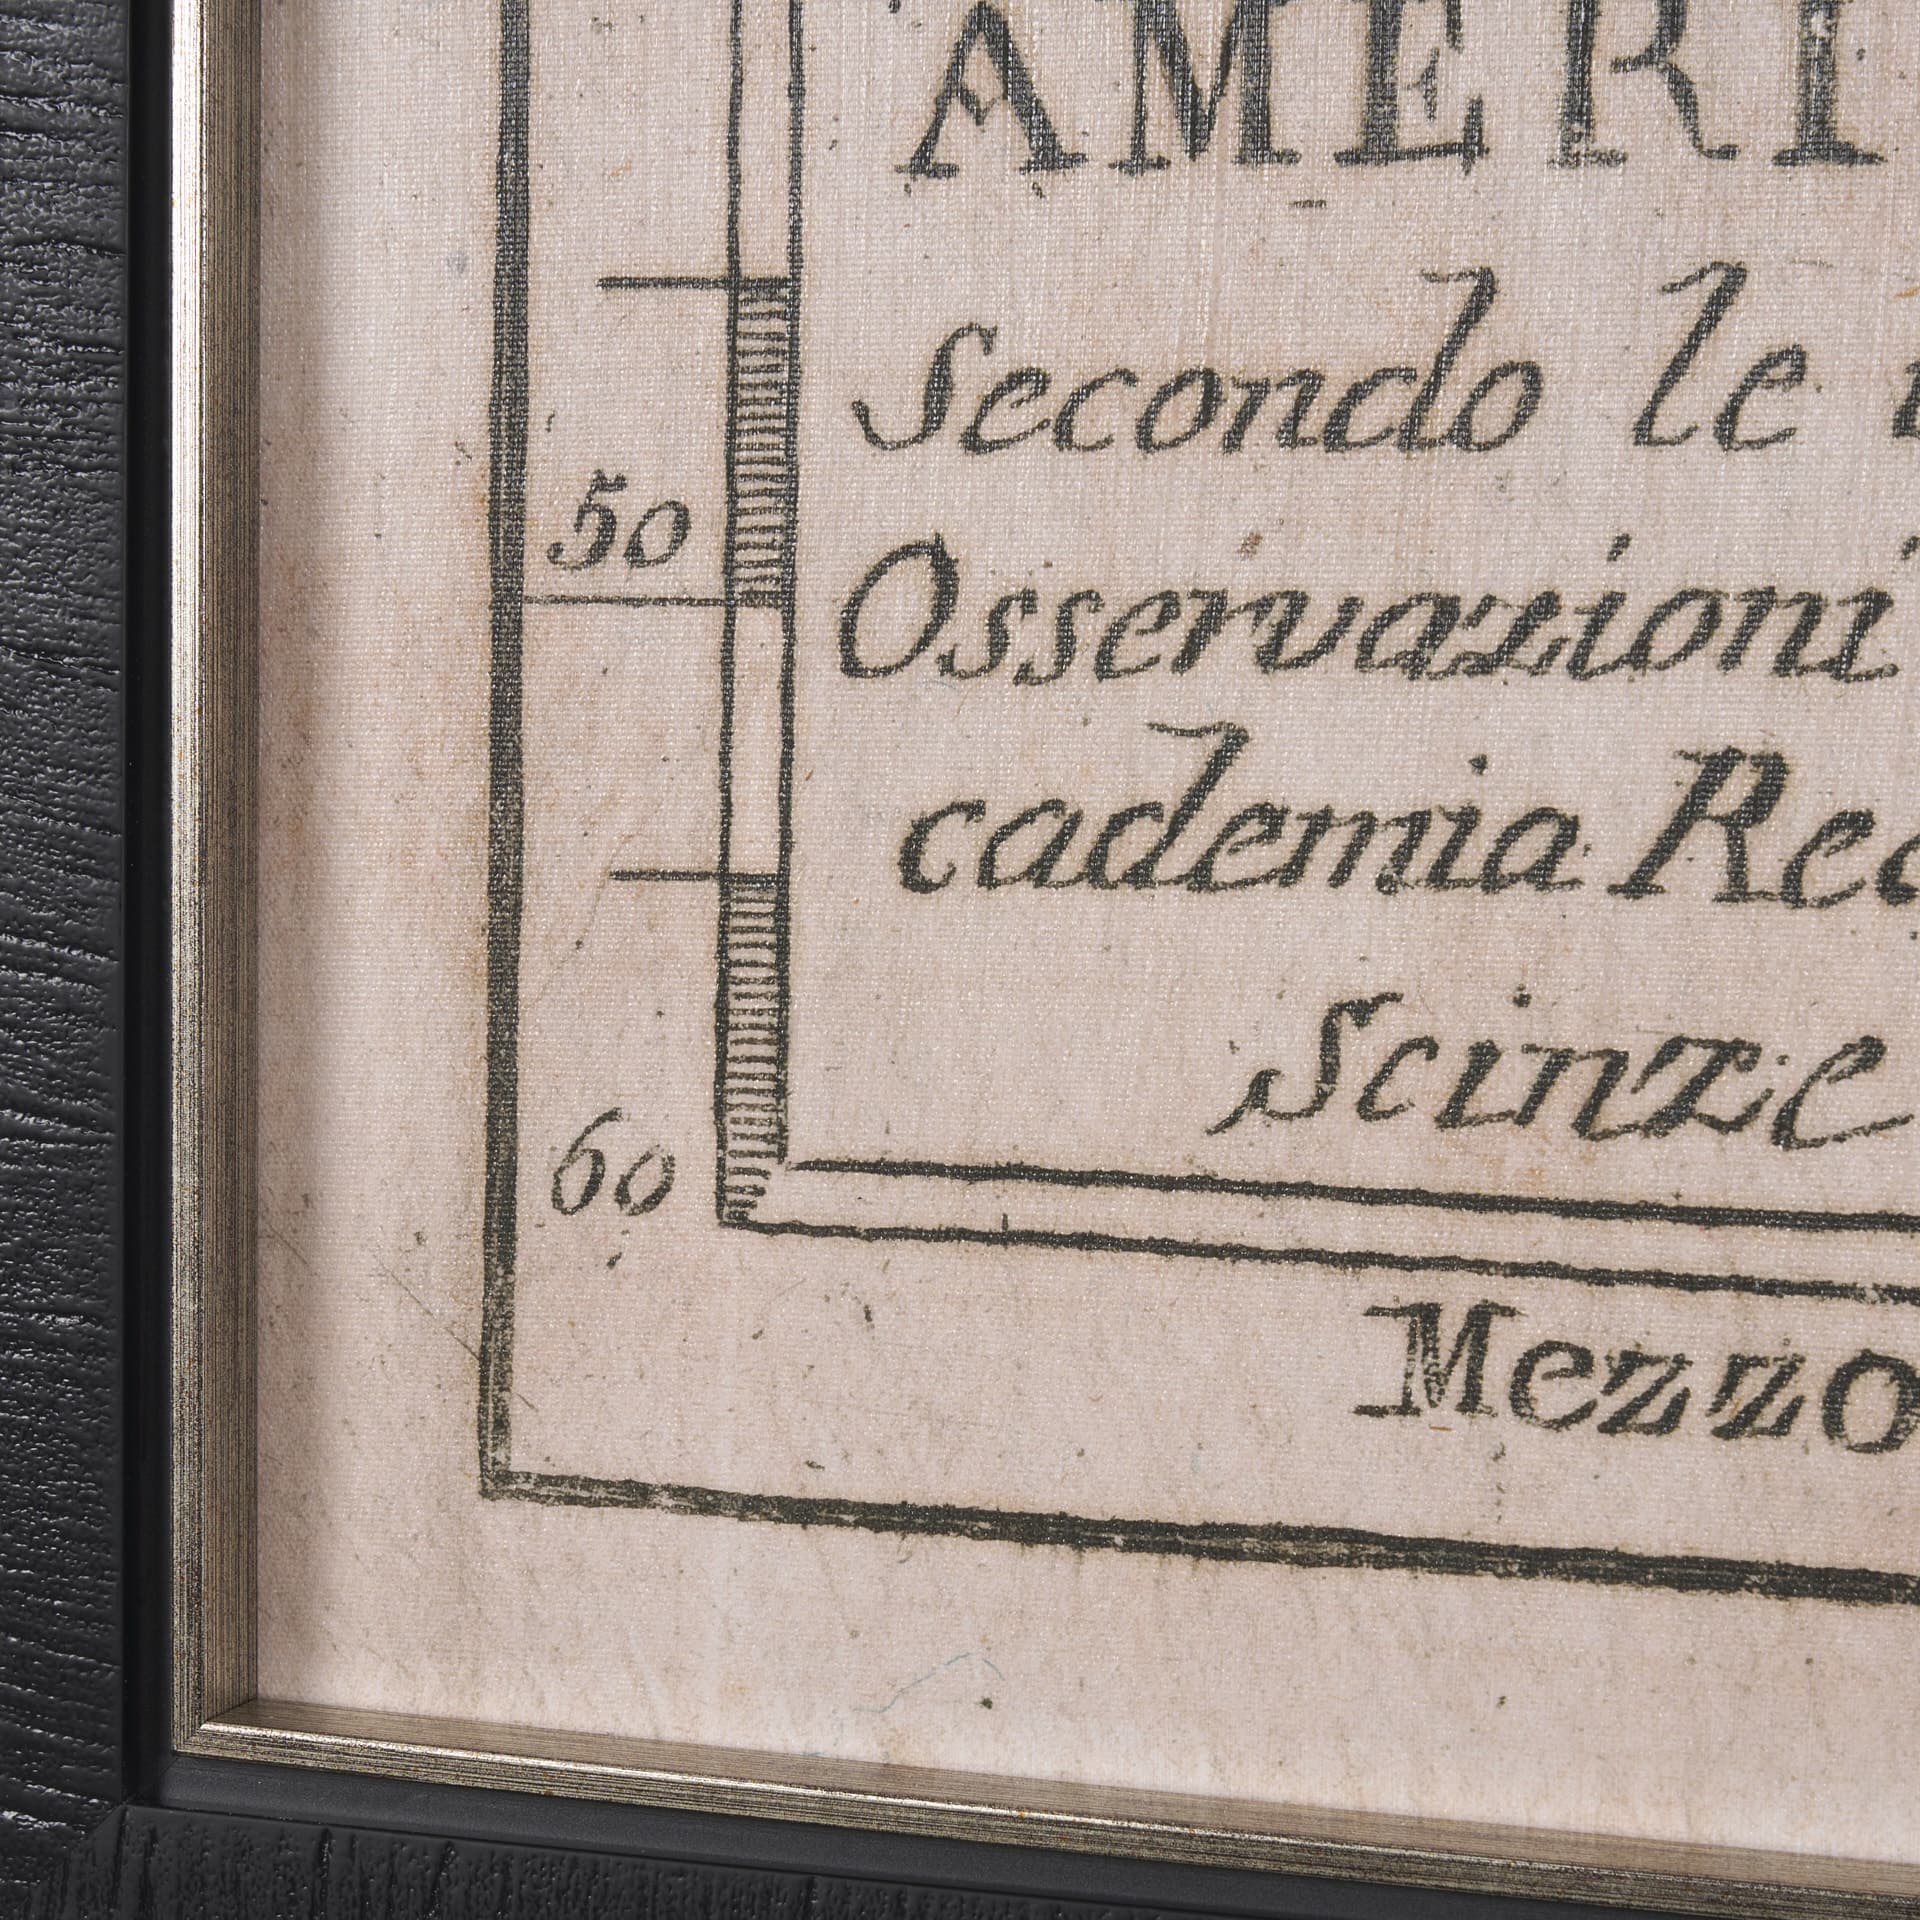 AMERI
Secondo le
50
Osservazioni
cademia Reg
Scinze
60
Mezzo